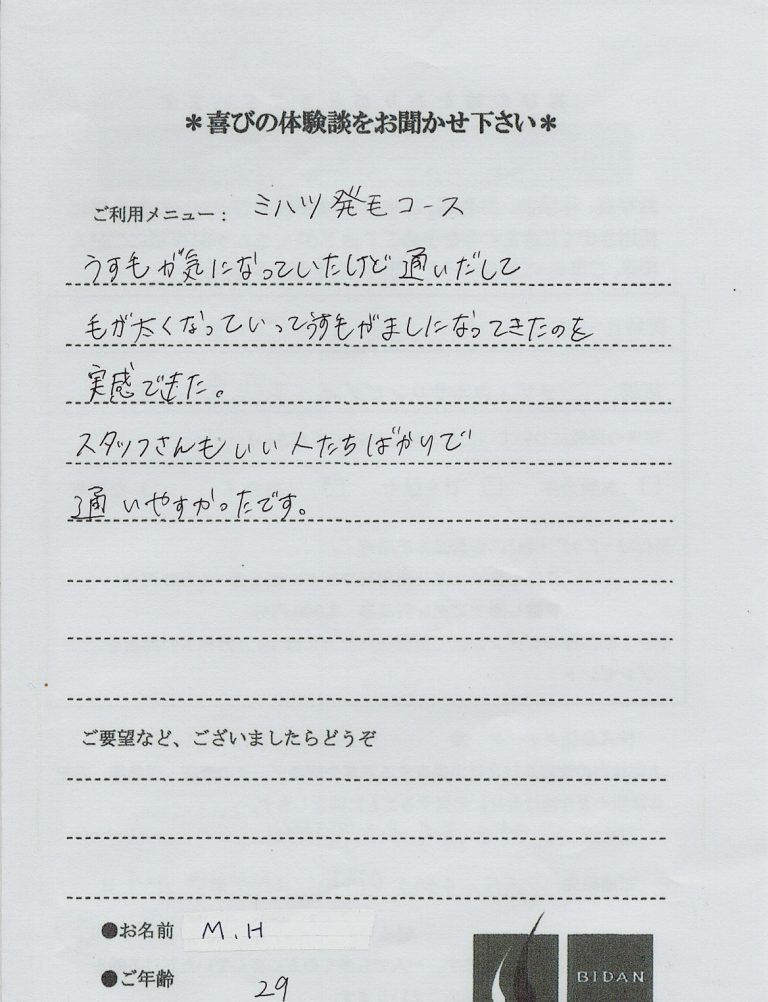 ＊喜びの体験談をお聞かせ下さい＊
ご利用メニュー： ミハツ発毛コース
うす毛が気になっていたけど通いだして
毛が太くなっていってうす毛がましになってきたのを
実感できた。
スタッフさんもいい人たちばかりで
通いやすかったです。
ご要望など、ございましたらどうぞ
●お名前 M.H
●ご年齢 29
BIDAN